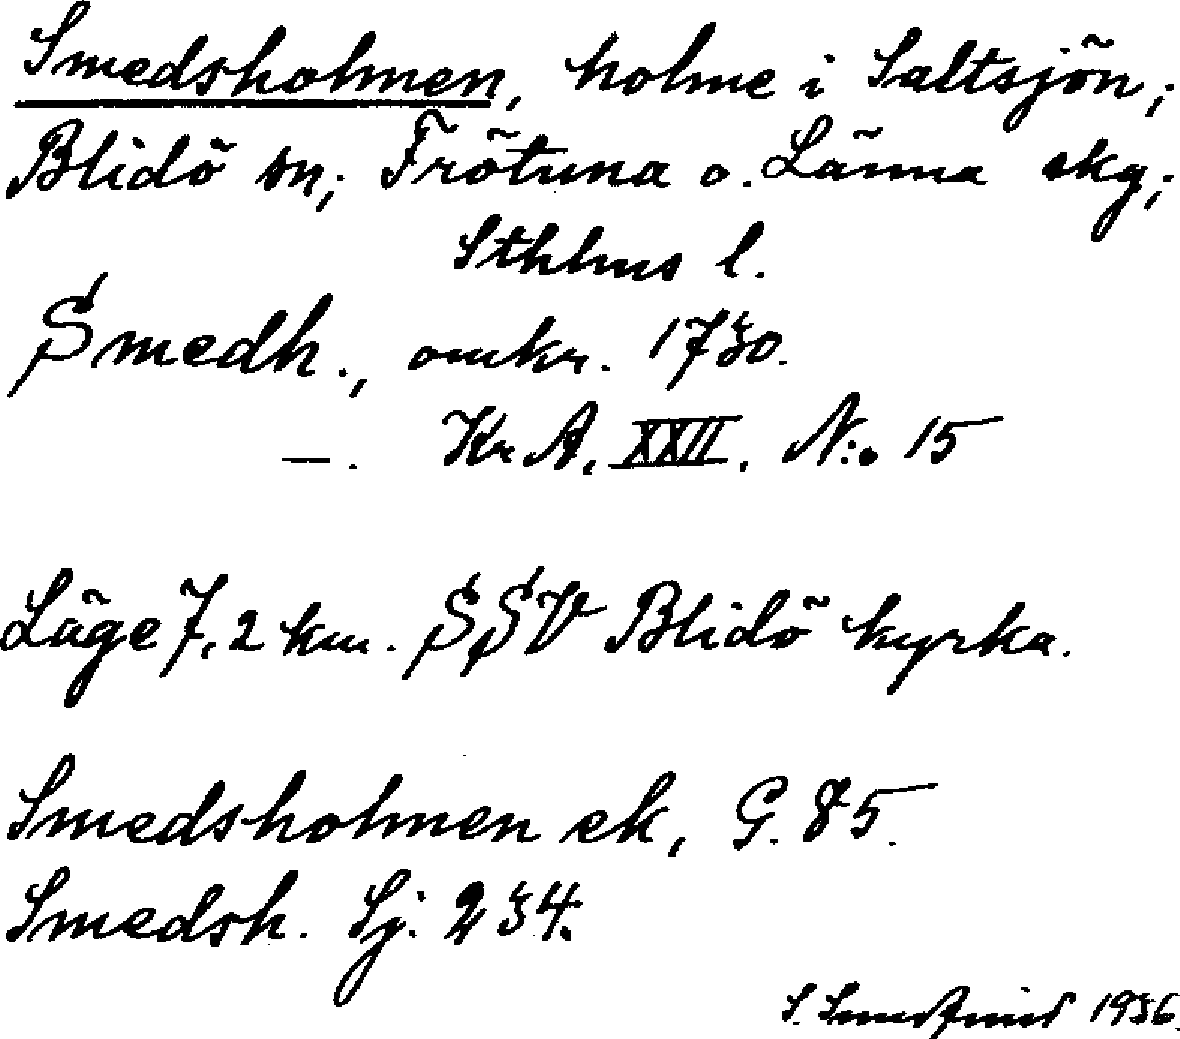 Smedsholmen, holme i Saltsjön;
Blidö sn; Frötuna o. Länna skg;
Sthlms l.
Smedh., omkr. 1730.
—. Kr A. XXII. N:o 15
Läge 7,2 km. SSV Blidö kyrka.
Smedsholmen ek, G. 85.
Smedsh. Sj. 234.
S. 1936.